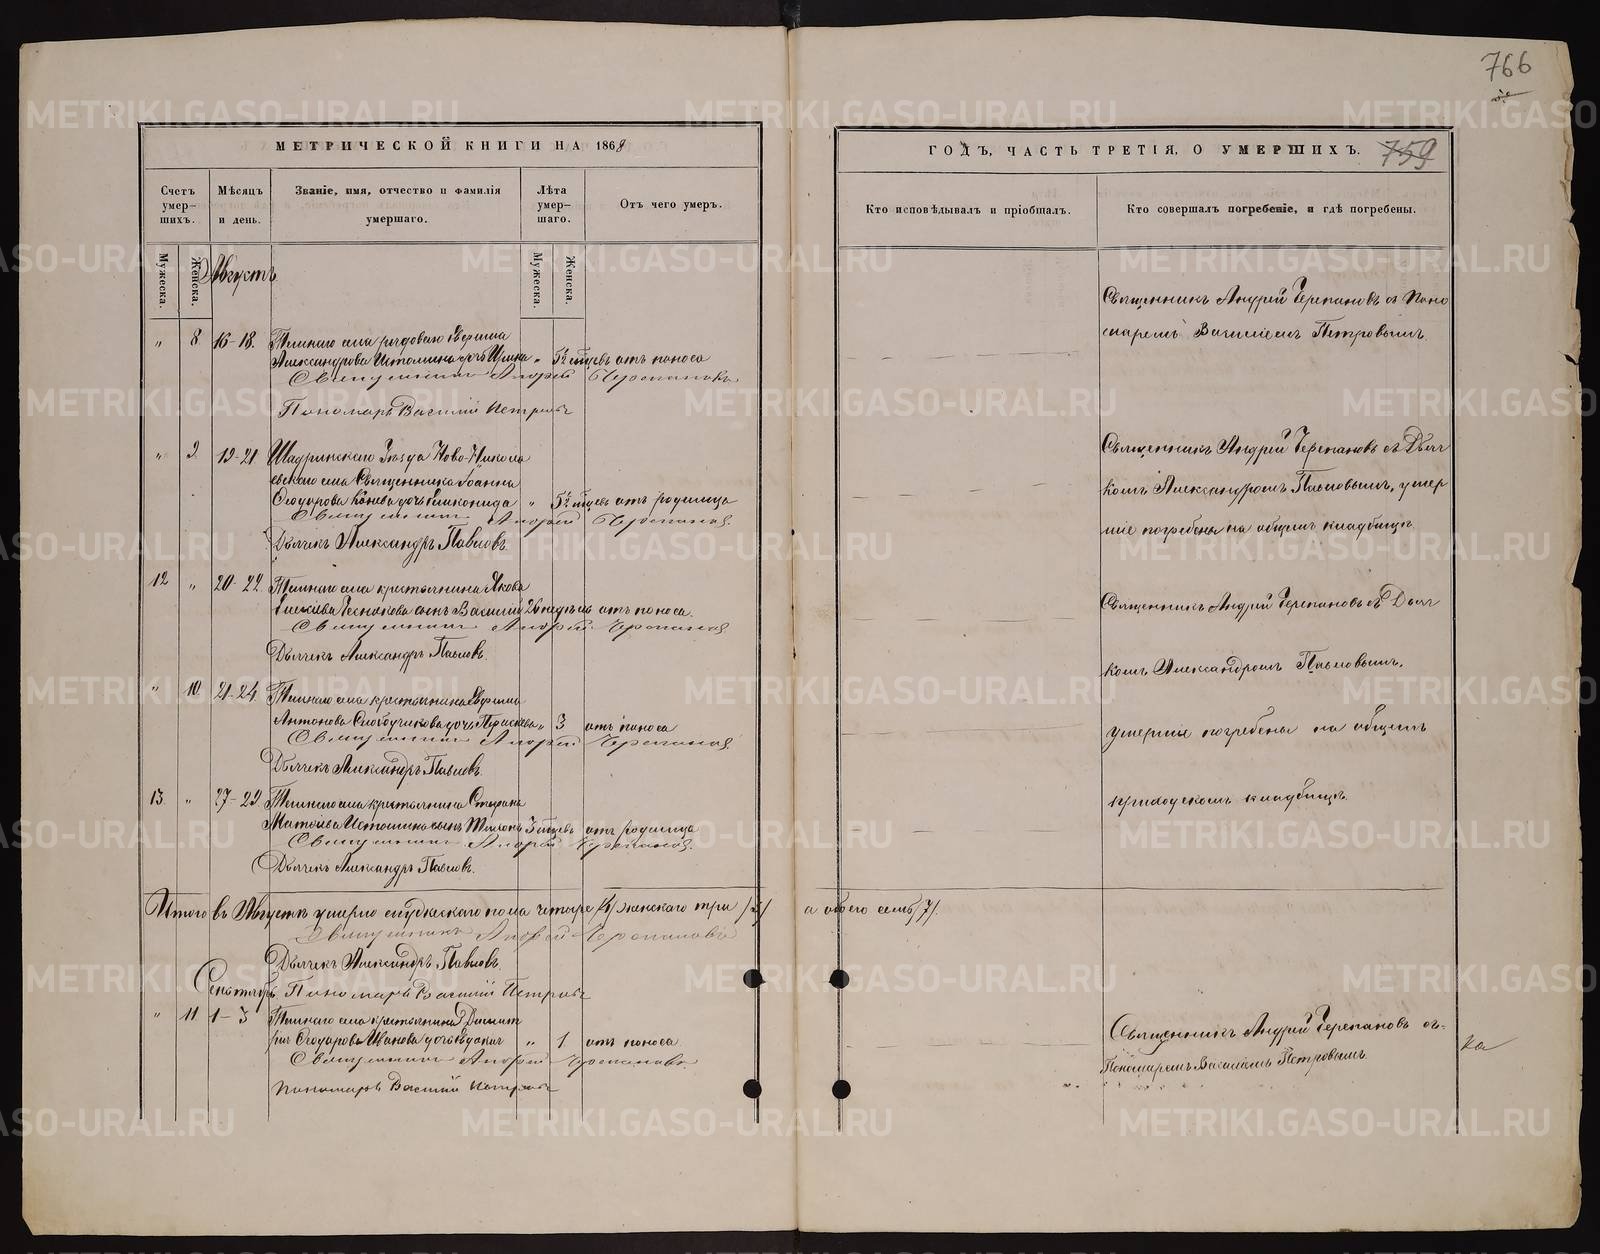 766
МЕТРИЧЕСКОЙ КНИГИ НА 1868
ГОДЪ, ЧАСТЬ ТРЕТІЯ, О УМЕРШИХЪ.
759
Счетъ умер-шихъ.
Мѣсяцъ и день.
Званіе, имя, отчество и фамилія умершаго.
Лѣта умер-шаго.
Отъ чего умеръ.
Кто исповѣдывалъ и пріобщалъ.
Кто совершалъ погребеніе, и гдѣ погребены.
Мужеска.
Женска.
Мужеска.
Женска.
Августъ.
Священникъ Андрей Черепановъ съ Поно
маремъ Василіемъ Петровымъ.
" 8 16-18.
Александрова Истомина дочь " отъ поноса
Священникъ Андрей Черепановъ
Пономарь Василій Петровъ
" 9 19-21 Шадринскаго Уѣзда Ново-Никола
евскаго села Священника Іоанна
Ѳеодорова дочь " отъ родимца
Священникъ Андрей Черепановъ
Дьячекъ Александръ Павловъ.
Священникъ Андрей Черепановъ съ Дьяч
комъ Александромъ Павловымъ, умер
шіе погребены на общемъ кладбищѣ
12 " 20-22 села крестьянина Якова
сынъ Василій 26 недѣль отъ поноса.
Священникъ Андрей Черепановъ
Дьячекъ Александръ Павловъ.
Священникъ Андрей Черепановъ съ Дьяч
комъ Александромъ Павловымъ.
" 10 21-24 села крестьянина
Антонова Слободчикова дочь " 3 отъ поноса
Священникъ Андрей Черепановъ
Дьячекъ Александръ Павловъ.
умершіе погребены на общемъ
приходскомъ кладбищѣ.
13. " 27-29 села крестьянина Стефана
Истомина сынъ отъ родимца
Священникъ Андрей Черепановъ.
Дьячекъ Александръ Павловъ.
Итого въ Августѣ умерло мужескаго пола четыре /4/ женскаго три /3/ а обоего семь /7/.
Священникъ Андрей Черепановъ
Дьячекъ Александръ Павловъ.
Сентябрь. Пономарь Василій Петровъ
" 11 1-3 села крестьянина Димит
рія Ѳеодорова дочь " 1 отъ поноса
Священникъ Андрей Черепановъ
Пономарь Василій Петровъ
Священникъ Андрей Черепановъ съ
Пономаремъ Василіемъ Петровымъ.
METRIKI.GASO-URAL.RU